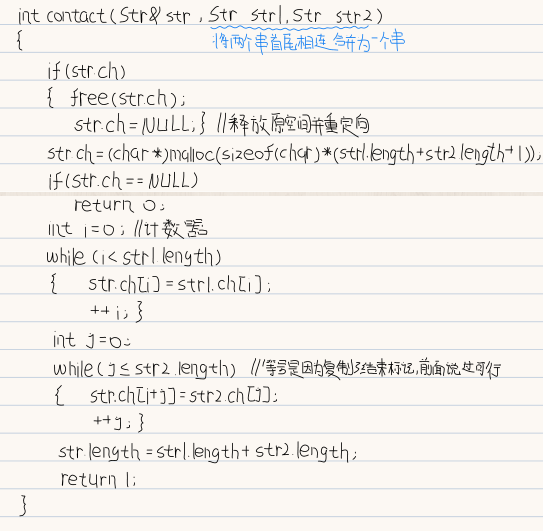 int contact(Str& str, Str str1, Str str2)
{ 将两个串首尾相连合并为一个串
if(str.ch)
{ free(str.ch);
str.ch=NULL;} //释放原空间并重定向
str.ch=(char*)malloc(sizeof(char)*(str1.length+str2.length+1));
if(str.ch==NULL)
return 0;
int i=0; //计数器
while(i<str1.length)
{ str.ch[i]=str1.ch[i];
++i; }
int j=0;
while(j≤str2.length) //等号是因为复制了结束标记,前面说过可行
{ str.ch[i+j]=str2.ch[j];
++j; }
str.length=str1.length+str2.length;
return 1;
}